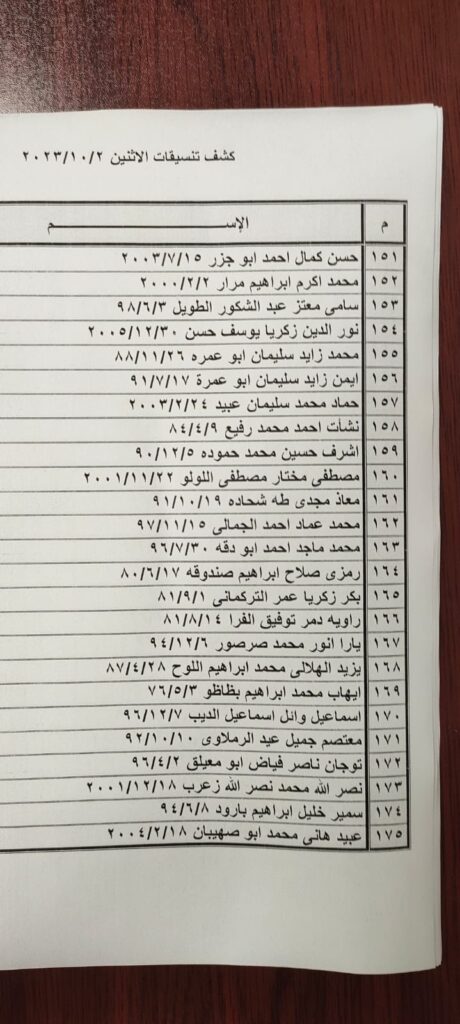 كشف تنسيقات الاثنين ٢٠٢٣/١٠/٢
م الإســـــــــــــــم
١٥١ حسن كمال احمد ابو جزر ٢٠٠٣/٧/١٥
١٥٢ محمد اكرم ابراهيم مرار ٢٠٠٠/٢/٢
١٥٣ سامى معتز عبد الشكور الطويل ٩٨/٦/٣
١٥٤ نور الدين زكريا يوسف حسن ٢٠٠٥/١٢/٣٠
١٥٥ محمد زايد سليمان ابو عمره ٨٨/١١/٢٦
١٥٦ ايمن زايد سليمان ابو عمرة ٩١/٧/١٧
١٥٧ حماد محمد سليمان عبيد ٢٠٠٣/٢/٢٤
١٥٨ نشأت احمد محمد رفيع ٨٤/٤/٩
١٥٩ اشرف حسين محمد حموده ٩٠/١٢/٥
١٦٠ مصطفى مختار مصطفى اللولو ٢٠٠١/١١/٢٢
١٦١ معاذ مجدى طه شحاده ٩١/١٠/١٩
١٦٢ محمد عماد احمد الجمالى ٩٧/١١/١٥
١٦٣ محمد ماجد احمد ابو دقه ٩٦/٧/٣٠
١٦٤ رمزى صلاح ابراهيم صندوقه ٨٠/٦/١٧
١٦٥ بكر زكريا عمر التركمانى ٨١/٩/١
١٦٦ راويه دمر توفيق الفرا ٨١/٨/١٤
١٦٧ يارا انور محمد صرصور ٩٤/١٢/٦
١٦٨ يزيد الهلالى محمد ابراهيم اللوح ٨٧/٤/٢٨
١٦٩ ايهاب محمد ابراهيم بظاظو ٧٦/٥/٣
١٧٠ اسماعيل وائل اسماعيل الديب ٩٦/١٢/٧
١٧١ معتصم جميل عيد الرملاوى ٩٢/١٠/١٠
١٧٢ توجان ناصر فياض ابو معيلق ٩٦/٤/٢
١٧٣ نصر الله محمد نصر الله زعرب ٢٠٠١/١٢/١٨
١٧٤ سمير خليل ابراهيم بارود ٩٤/٦/٨
١٧٥ عبيد هانى محمد ابو صهيبان ٢٠٠٤/٢/١٨